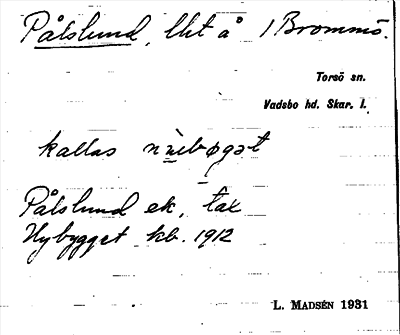 Pålslund, lht å 1 Brommö.
Torsö sn.
Vadsbo hd. Skar. l.
kallas
Pålslund ek, tax
Nybygget kb. 1912
L. MADSÉN 1931